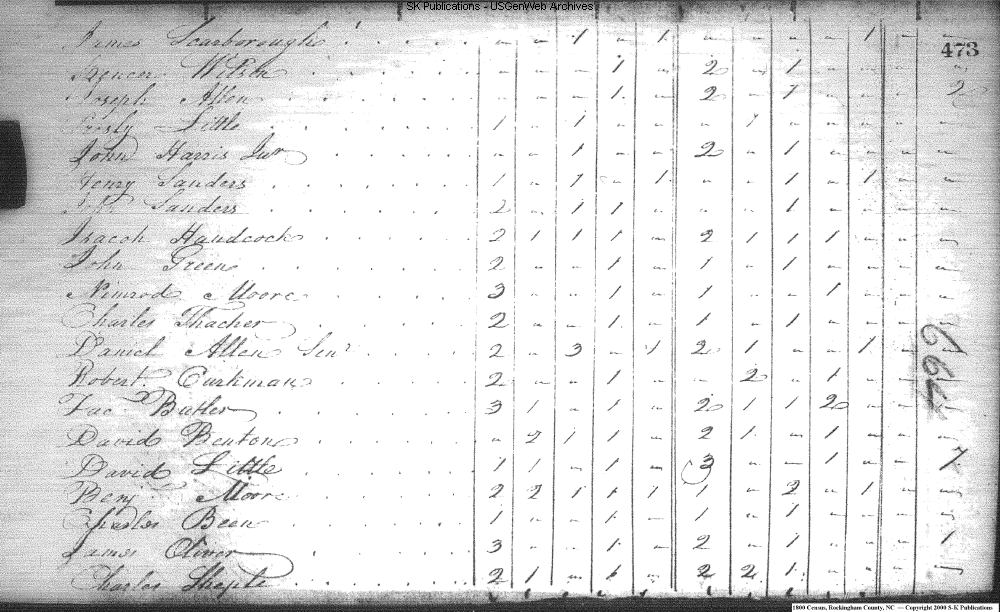 SK Publications - USGenWeb Archives
473
James Scarborough - - 1 - 1 - - - - 1 - -
Spencer Wilson - - - 1 - 2 - 1 - - - -
Joseph Allen - - - 1 - 2 - 1 - - - 2
Little 1 - 1 - - - 1 - - - - -
John Harris Junr - - 1 - - 2 - 1 - - - -
Henry Sanders 1 - 1 - 1 - - 1 - 1 - -
John Sanders 2 - 1 1 - - - 1 - - - -
Handcock 2 1 1 1 - 2 1 1 1 - - -
John Green 2 - - 1 - 1 - 1 - - - -
Nimrod Moore 3 - - 1 - 1 - - 1 - - -
Charles Thacher 2 - - 1 - 1 - 1 - - - -
Daniel Allen Senr 2 - 3 - 1 2 1 - - 1 - -
Robert 2 - - 1 - - 2 - 1 - - -
Butler 3 1 - 1 - 2 1 1 2 - - -
David Benton - 2 1 1 - 2 1 - 1 - - -
David Little 1 1 - 1 - 3 - - 1 - - 7
Benj Moore 2 2 1 1 1 1 - 2 - 1 - -
Charles Bean 1 - - 1 - 1 - 1 - - - -
James Oliver 3 - - 1 - 2 - 1 - - - 1
Charles 2 1 - 1 - 2 2 1 - - - 1
1800 Census, Rockingham County, NC — Copyright 2000 S-K Publications